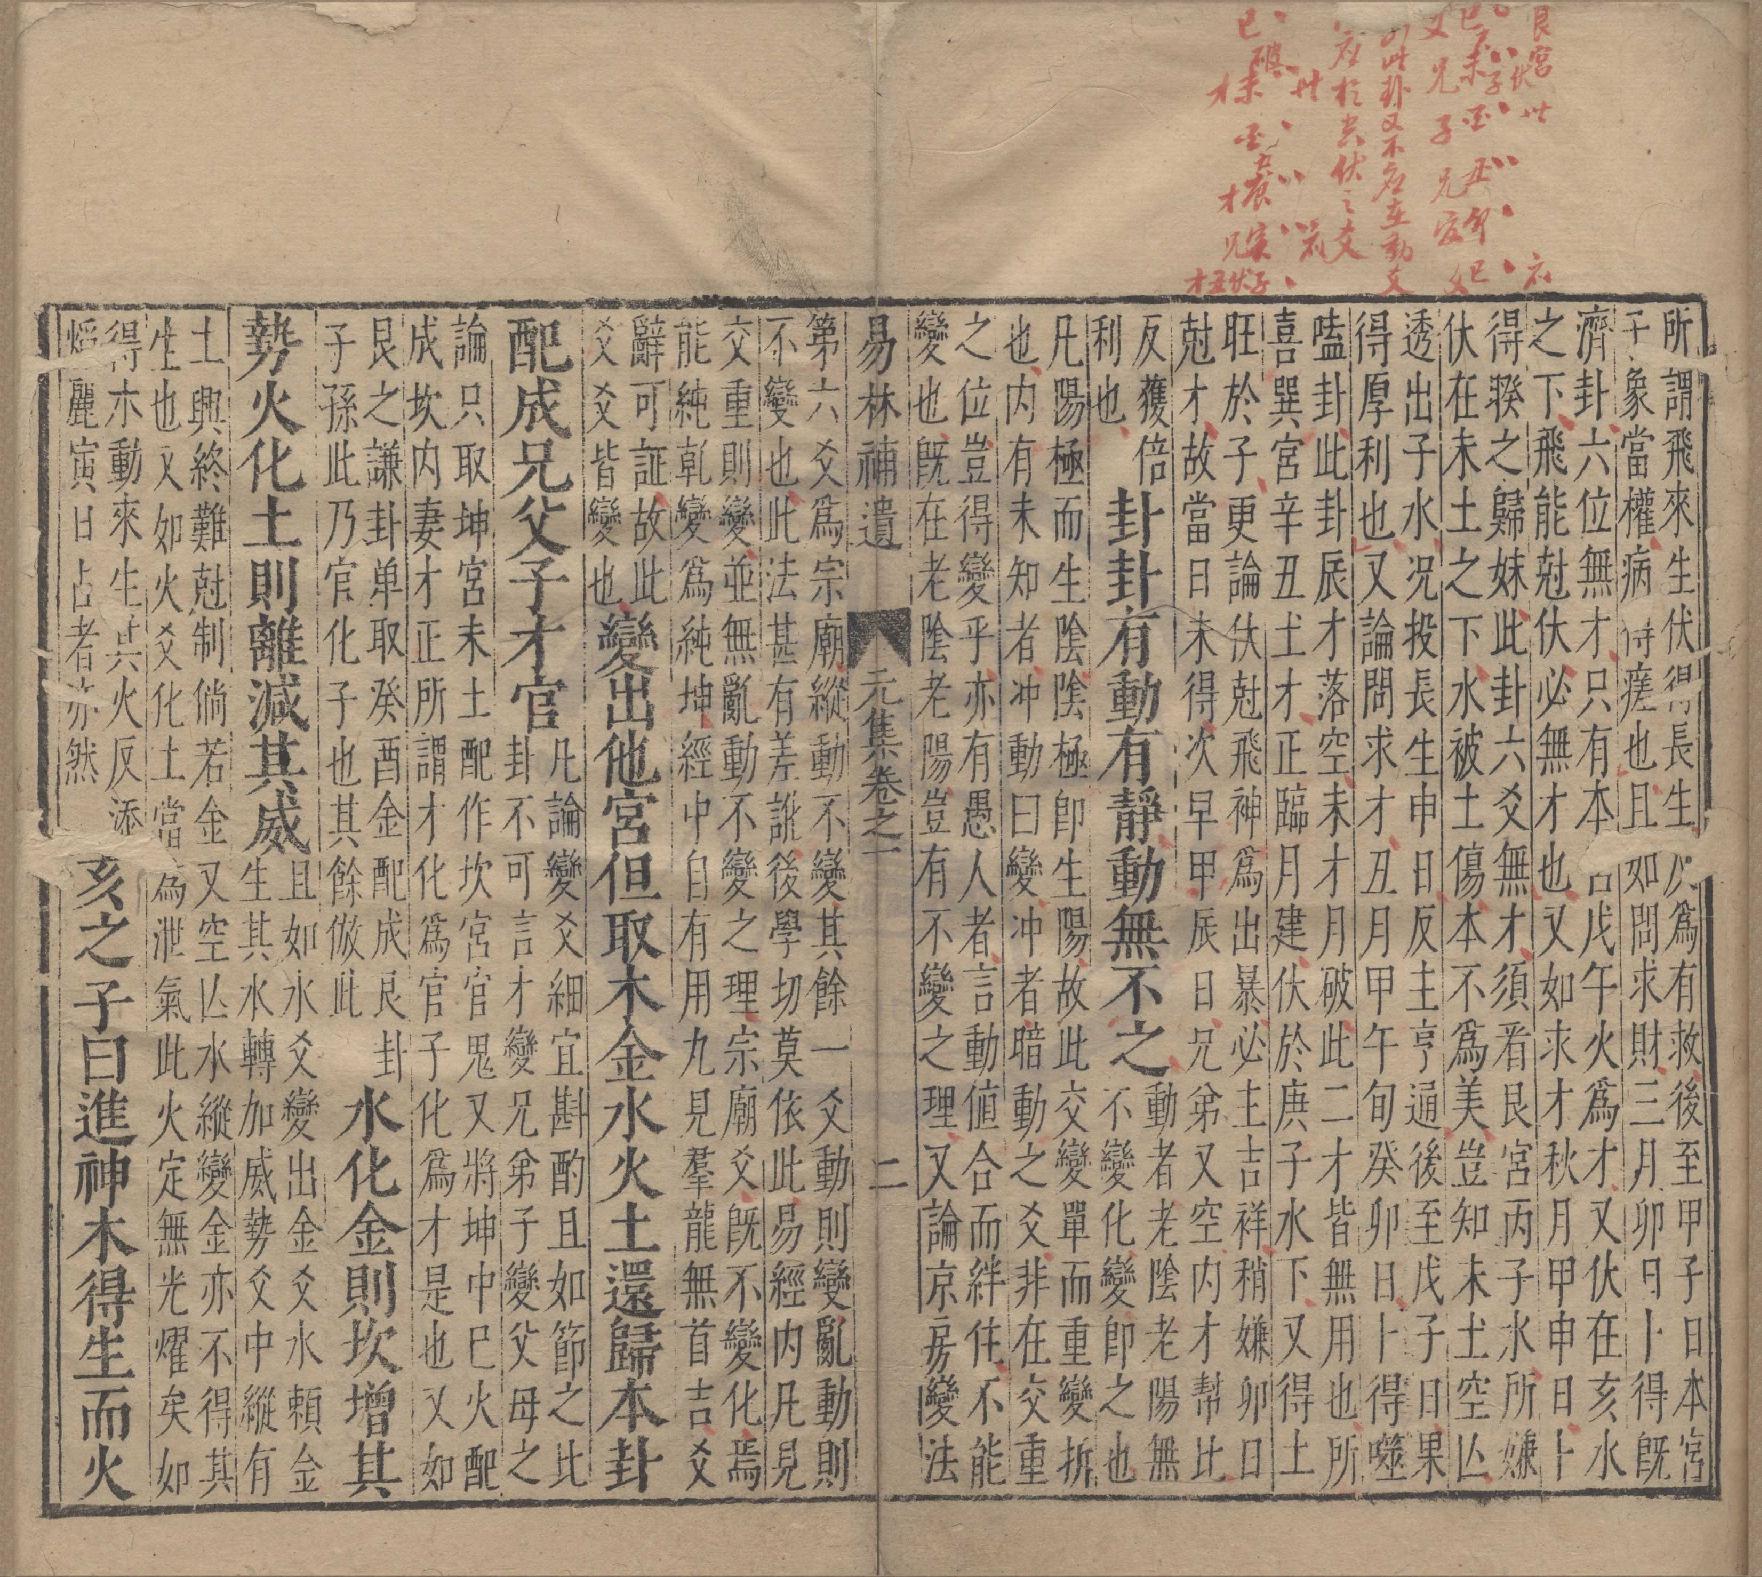 所謂飛來生伏得長生伏爲有救後至甲子日本宮
子象當權病得瘥也且如問求財三月卯日卜得旣
濟卦六位無才只有本宮戊午火爲才又伏在亥水
之下飛能尅伏必無才也又如求才秋月甲申日卜
得睽之歸妹此卦六爻無才須看艮宮丙子水所嫌
伏在未土之下水被土傷本不爲美豈知未土空亡
透出子水況投長生申日反主亨通後至戊子日果
得厚利也又論問求才丑月甲午旬癸卯日卜得噬
嗑卦此卦辰才落空未才月破此二才皆無用也所
喜巽宮辛丑土才正臨月建伏於庚子水下又得土
旺於子更論伏尅飛神爲出暴必主吉祥稍嫌卯日
尅才故當日未得次早甲辰日兄弟又空內才幫比
反獲倍
利也
卦卦有動有靜動無不之
動者老陰老陽無
不變化變即之也
凡陽極而生陰陰極即生陽故此交變單而重變拆
也內有未知者冲動曰變冲者暗動之爻非在交重
之位豈得變乎亦有愚人者言動値合而絆住不能
變也旣在老陰老陽豈有不變之理又論京房變法
易林補遺 元集卷之一 二
第六爻爲宗廟縱動不變其餘一爻動則變亂動則
不變也此法甚有差訛後學切莫依此易經內凡見
交重則變並無亂動不變之理宗廟爻旣不變化焉
能純乾變爲純坤經中自有用九見羣龍無首吉爻
辭可証故此
爻爻皆變也
變出他宮但取木金水火土還歸本卦
配成兄父子才官
凡論變爻細宜斟酌且如節之比
卦不可言才變兄弟子變父母之
論只取坤宮未土配作坎宮官鬼又將坤中巳火配
成坎內妻才正所謂才化爲官子化爲才是也又如
艮之謙卦单取癸酉金配成艮卦
子孫此乃官化子也其餘倣此
水化金則坎增其
勢火化土則離減其威
且如水爻變出金爻水頼金
生其水轉加威勢爻中縱有
土興終難尅制倘若金又空亡水縱變金亦不得其
生也又如火爻化土當爲泄氣此火定無光耀矣如
得木動來生其火反添
麗寅日占者亦然
亥之子曰進神木得生而火